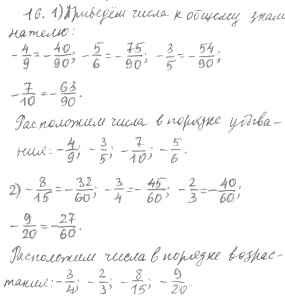 16. 1) Приведём числа к общему знаме-
нателю:
-4/9 = -40/90; -5/6 = -75/90; -3/5 = -54/90;
-7/10 = -63/90.
Расположим числа в порядке убыва-
ния: -4/9; -3/5; -7/10; -5/6.
2) -8/15 = -32/60; -3/4 = -45/60; -2/3 = -40/60;
-9/20 = -27/60.
Расположим числа в порядке возрас-
тания: -3/4; -2/3; -8/15; -9/20.